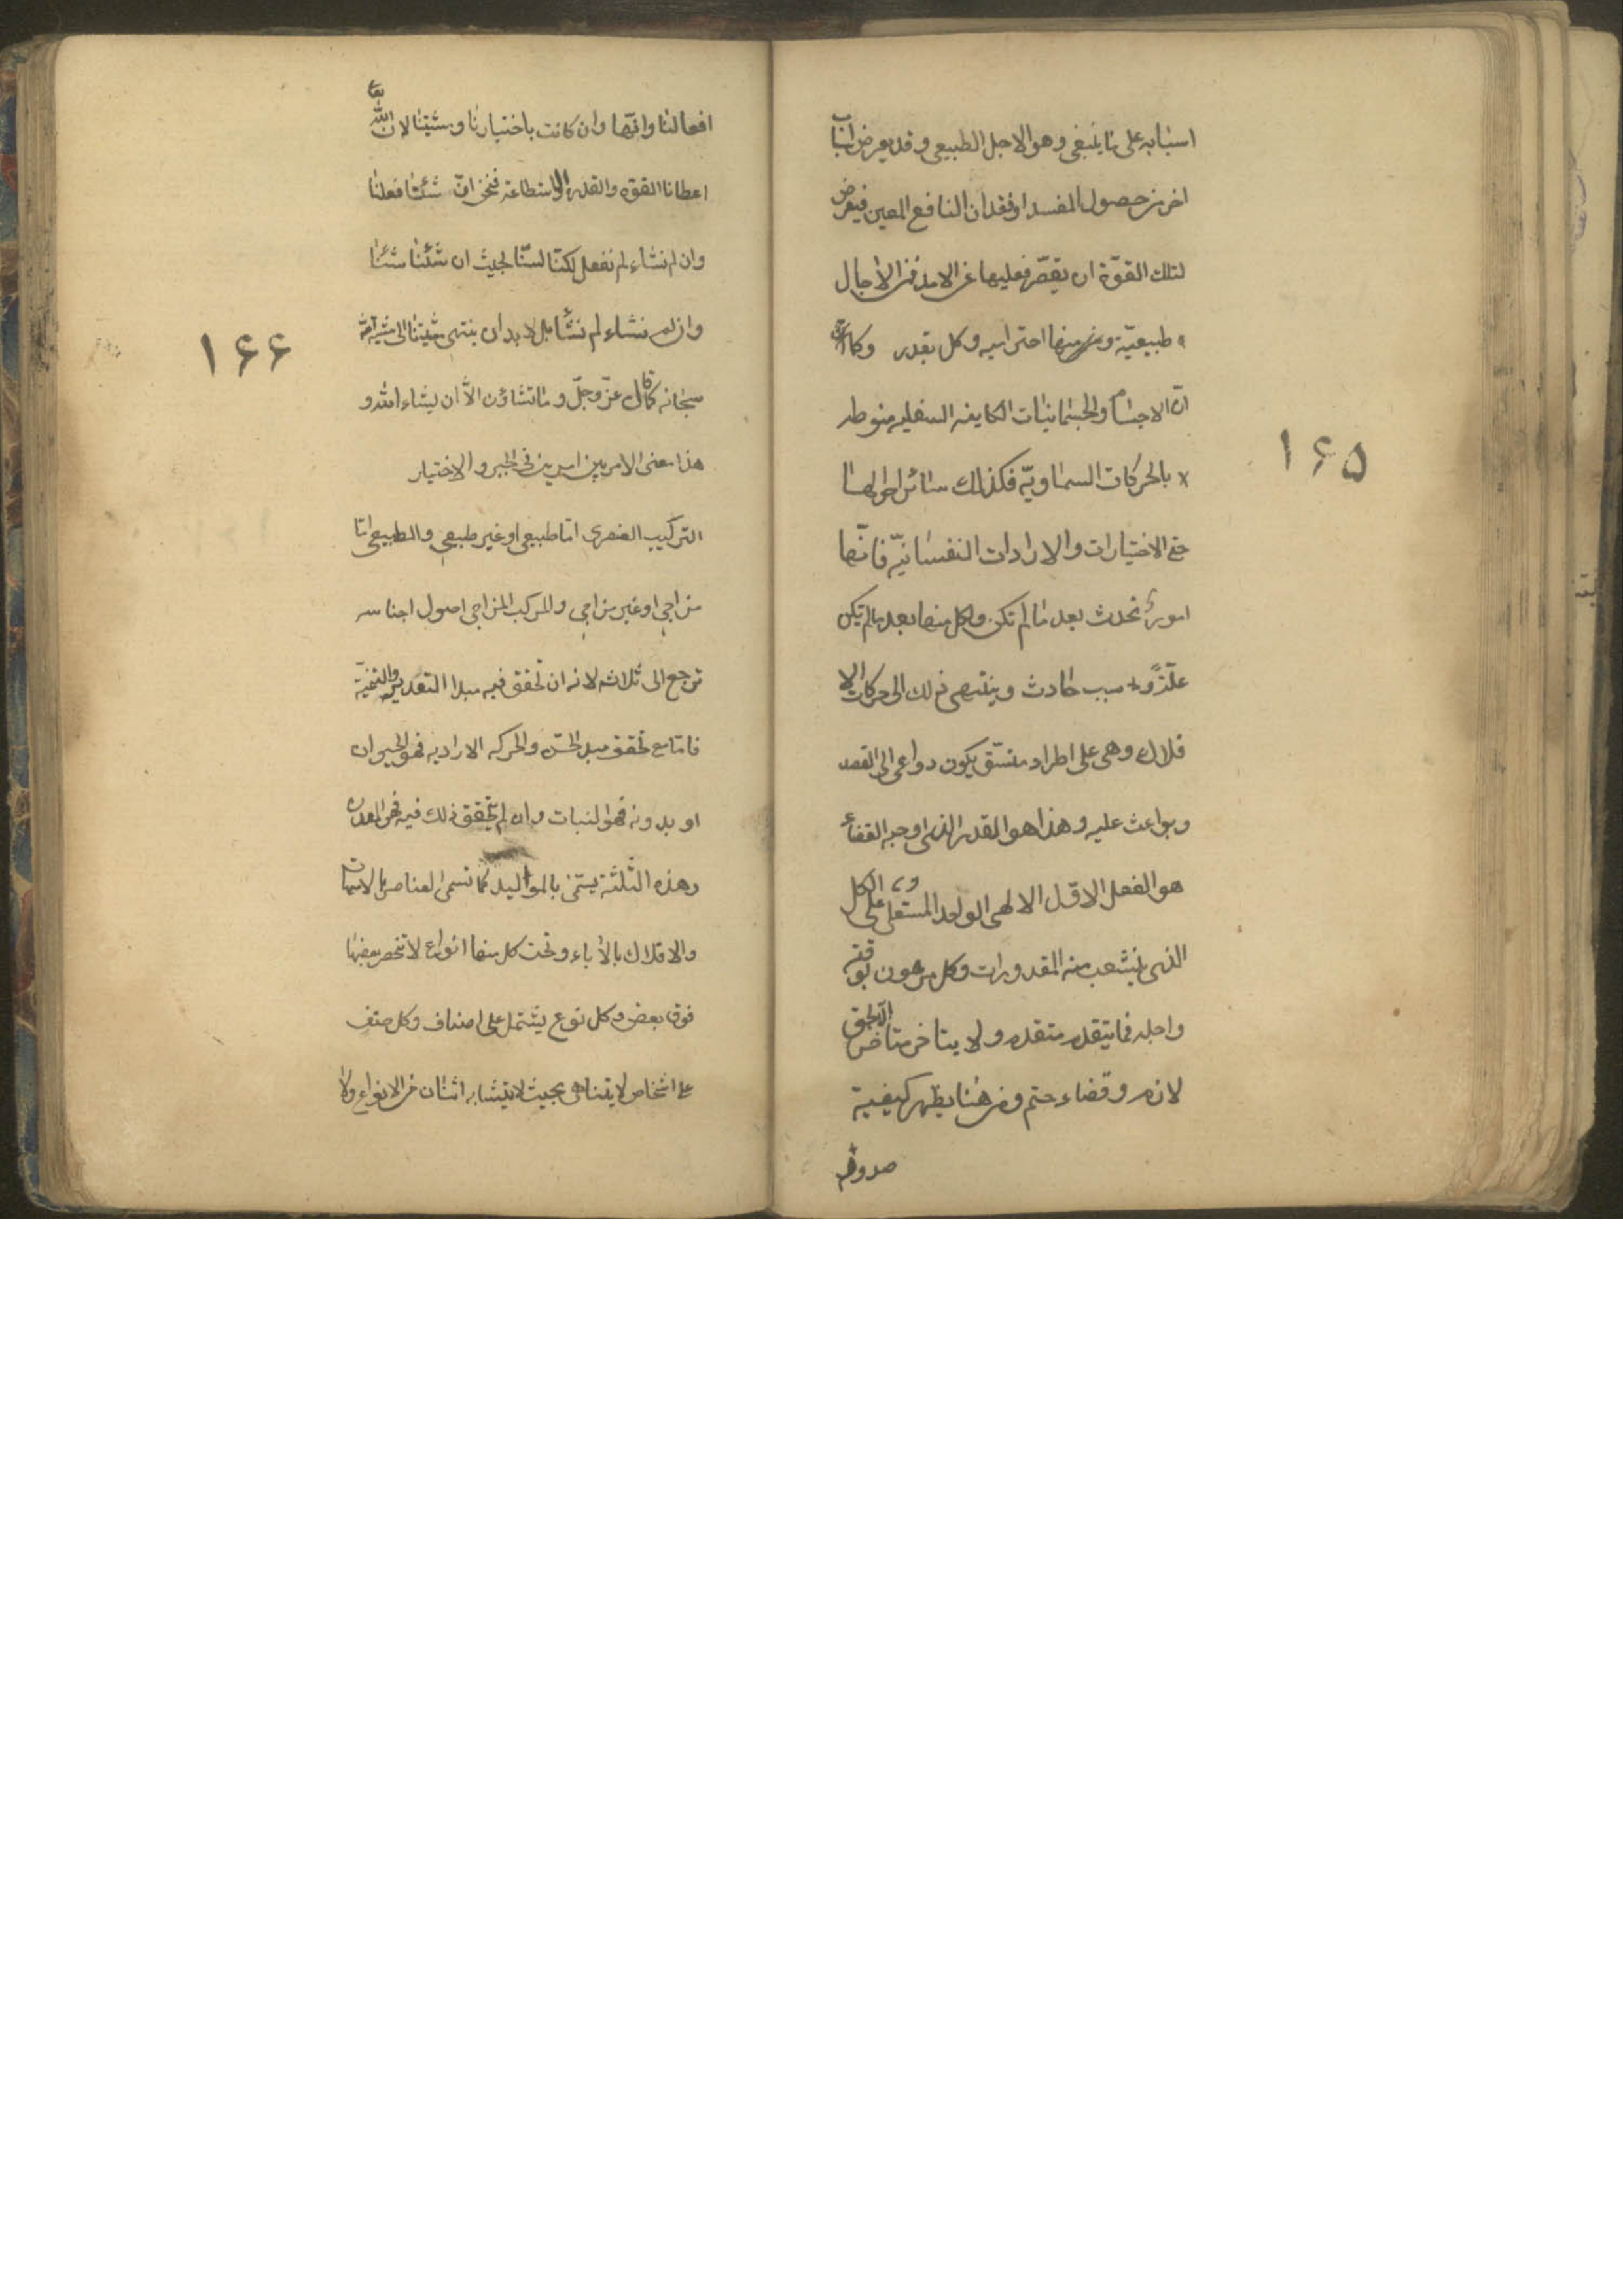 اسبابه على ما ينبغى وهو الاجل الطبيعى وقد يعرض اسباب
اخر من حصول المفسد او فقدان النافع المعين فيعرض
لتلك القوّة ان يقصّر فعليها عن الامد فمن الآجال
طبيعيّة ومنها احتراميه وكل بقدر وكما
انّ الاجسام والجسمانيات الكاينه السفليه منوطه
بالحركات السماويّه فكذلك سائر احوالها
حتى الاختيارات والارادات النفسانيّه فانّها
امور تحدث بعد ما لم تكن ولكل منها بعد ما لم يكن
علّة و سبب حادث وينتهى ذلك الى حركات الا
فلاك وهى على اطراد متسّق يكون دواعى الى القصد
وبواعث عليه وهذا هو القدر الذى اوجبه القضاء
هو الفعل الاوّل الالهى الواحد المستعلى على الكل
الذى ينشعب منه المقدورات وكل مرهون بوقته
واجله فما يتقدم متقدم ولا يتاخر متاخر الا بحق
لازم وقضاء حتم ومن هنا يظهر كيفية
صدور
١٦٥
افعالنا وانّها وان كانت باختيارنا ومشيتنا لان الله تعا
اعطانا القوه والقدرة والاستطاعه فنحن ان شئنا فعلنا
وان لم نشاء لم نفعل لكنّا لسنا بحيث ان شئنا شئنا
وان لم نشاء لم نشأ بل لابد ان ينتهى مشيتنا الى مشية الله
سبحانه كما قال عزّ وجلّ وما تشاؤن الّا ان يشاء الله و
هذا معنى الامر بين امرين فى الجبر والاختيار
التركيب العنصرى امّا طبيعى او غير طبيعى والطبيعى امّا
مزاجى او غير مزاجى والمركب المزاجى اصول اجناسه
ترجع الى ثلاثه لانه ان تحقق فيه مبدا التغذيه والتنمية
فاما مع تحقق مبدا الحسّ والحركه الاراديه فهو الحيوان
او بدونه فهو النبات وان لم يتحقق ذلك فيه فهو المعدن
وهذه الثّلثة يسمّى بالمواليد كما تسمى العناصر بالامهات
والافلاك بالآباء وتحت كل منها انواع لا تنحصر بعضها
فوق بعض وكل نوع يشتمل على اصناف وكل صنف
على اشخاص لا يتناهى بحيث لا يتشابه اثنان من الانواع ولا
١٦٦